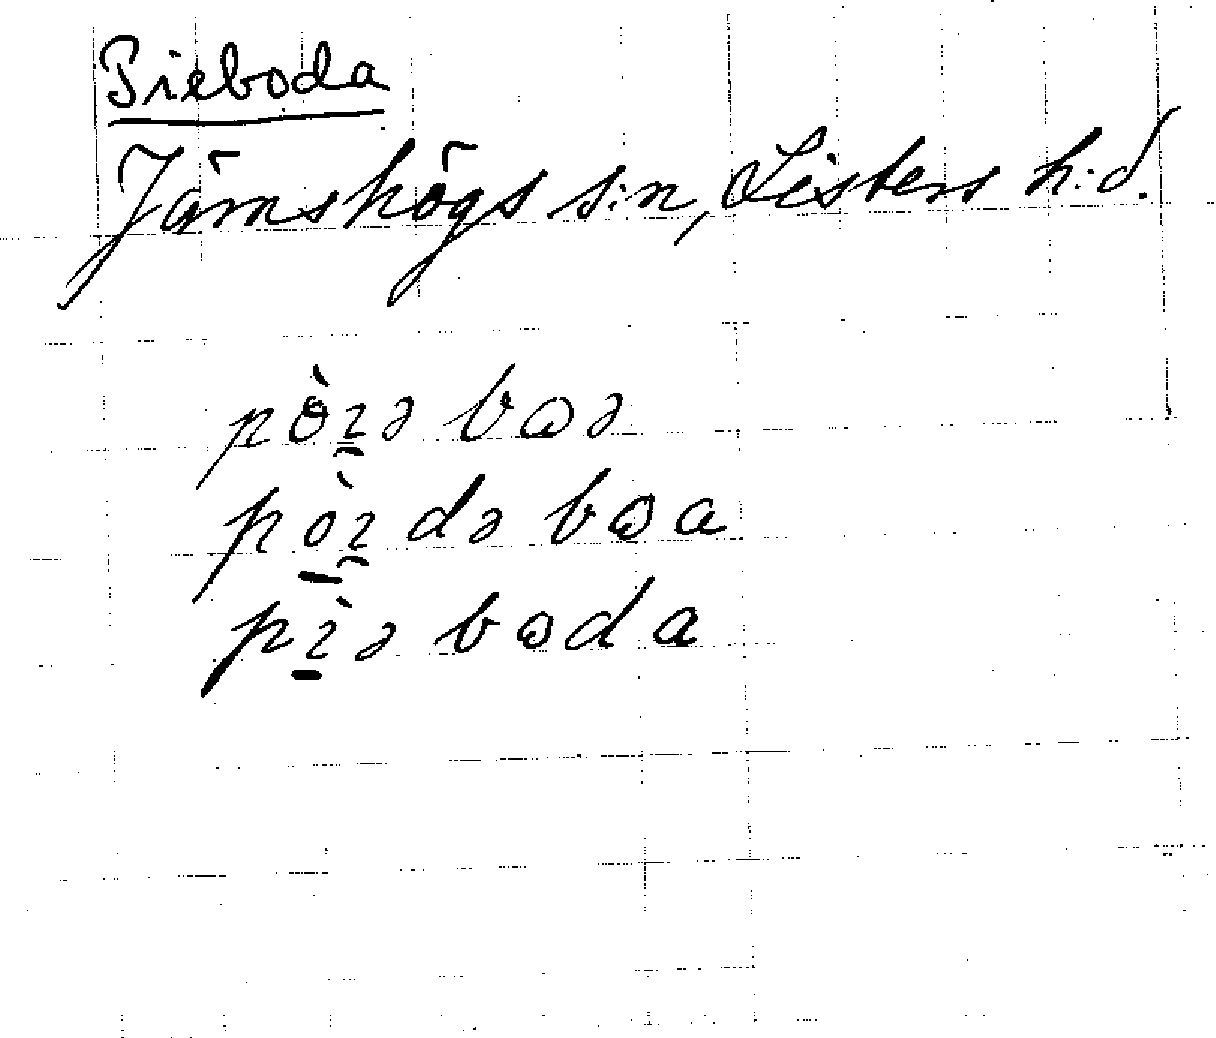 Pieboda
Jämshögs s:n, Listers h:d.
pò̈ı̯ə bɷə
pòı̯ də bɷa
pìə bɷda